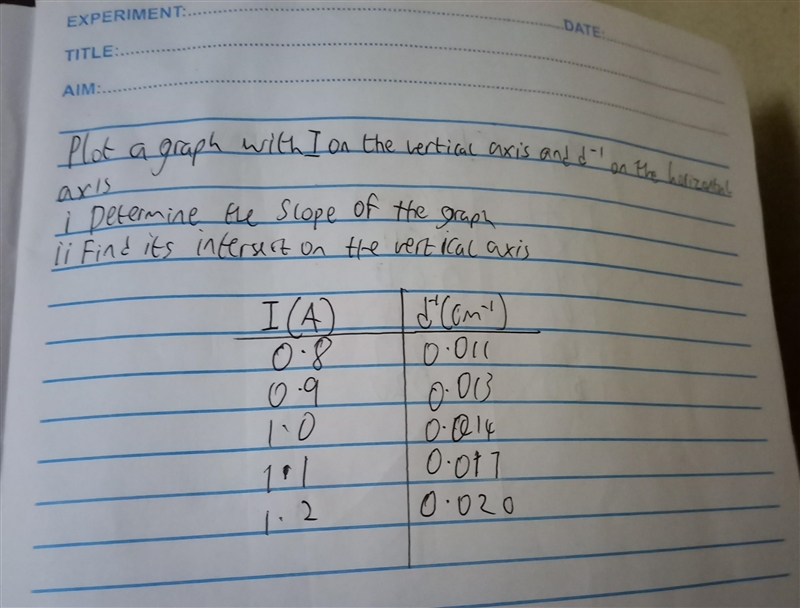 EXPERIMENT: DATE:
TITLE:
AIM:
Plot a graph with I on the vertical axis and d⁻¹ on the horizontal
axis
i Determine the slope of the graph
ii Find its intersect on the vertical axis
I(A) d⁻¹(cm⁻¹)
0.8 0.011
0.9 0.013
1.0 0.014
1.1 0.017
1.2 0.020